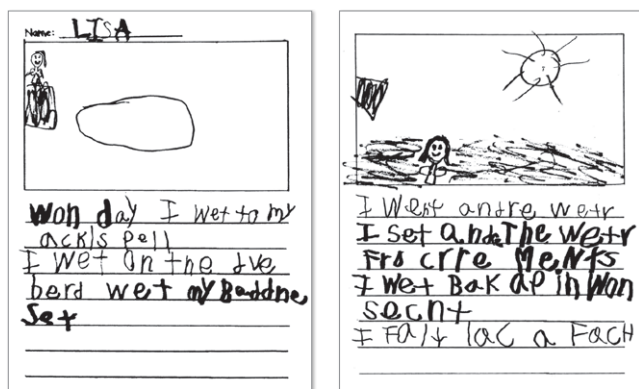 Name: LISA
Won day I wet to my
ackls pell
I wet on the dve
berd wet my Baddne
Set
I went andre wetr
I set andr The wetr
Fro crre Menfs
I wet Bak ap in Won
secnt
I Falt lac a FacH